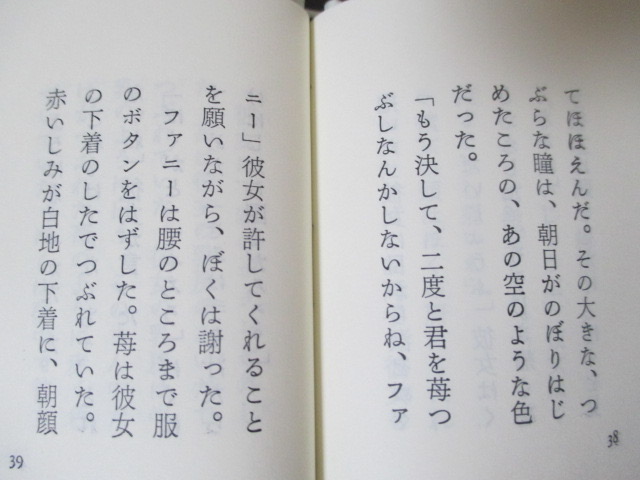 てほほえんだ。その大きな、つ
ぶらな瞳は、朝日がのぼりはじ
めたころの、あの空のような色
だった。
「もう決して、二度と君を苺つ
ぶしなんかしないからね、ファ
38
ニー」彼女が許してくれること
を願いながら、ぼくは謝った。
ファニーは腰のところまで服
のボタンをはずした。苺は彼女
の下着のしたでつぶれていた。
赤いしみが白地の下着に、朝顔
39